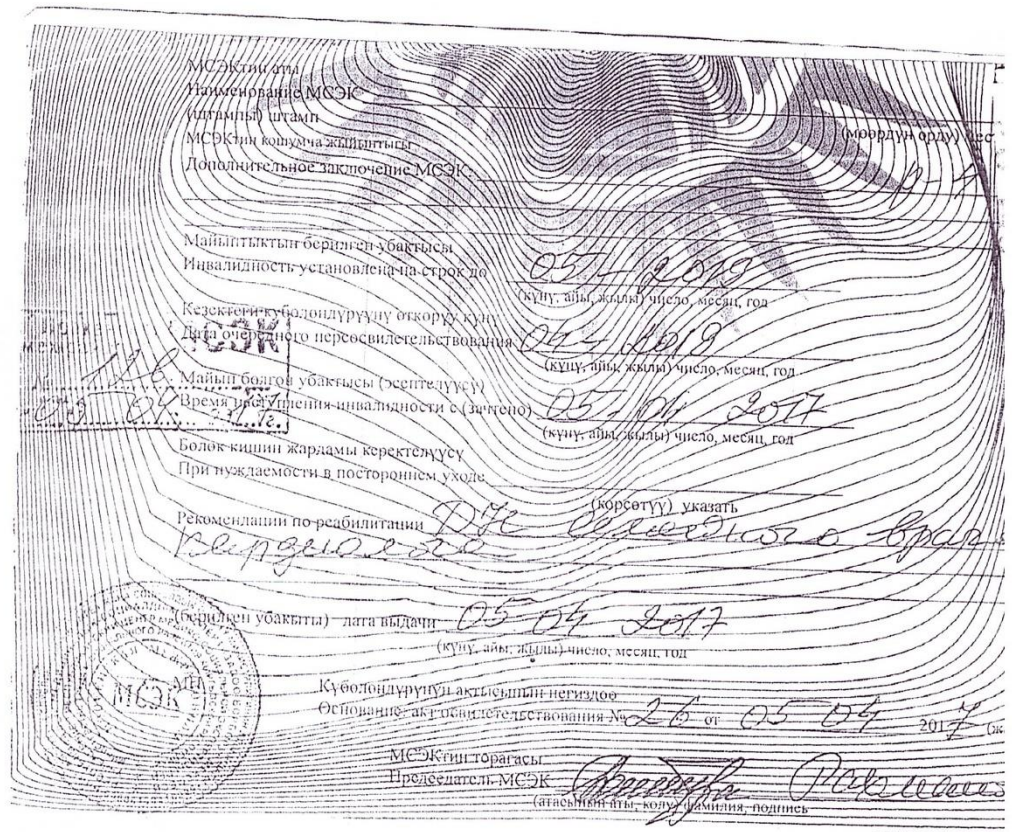 МСЭКтин аты
Наименование МСЭК
(штампы) штамп
(мөөрдүн орду) мес
МСЭКтин кошумча жыйынтыгы
Дополнительное заключение МСЭК:
Майыптыктын берилген убактысы
Инвалидность установлена на строк до 05- 2019
(күнү, айы, жылы) число, месяц, год
Кезектеги күбөлөндүрүүнү өткөрүү күнү
Дата очередного переосвидетельствования 2019
(күнү, айы, жылы) число, месяц, год
МСЭК
Майып болгон убактысы (эсептелүүсү)
Время наступления инвалидности с (зачтено) 05- 04 2017
05 04
(күнү, айы, жылы) число, месяц, год
Бөлөк кишин жардамы керектелүүсү
При нуждаемости в постороннем уходе
(көрсөтүү) указать
Рекомендации по реабилитации "Д"Н врач
кардиолога
(берилген убакыты) дата выдачи 05 04 2017
(күнү, айы, жылы) число, месяц, год
МСЭК
Күбөлөндүрүнүн актысынын негиздөө
Основание: акт освидетельствования № 26 от 05 04 2017
МСЭКтин торагасы
Председатель МСЭК
(атасынын аты, колу) фамилия, подпись